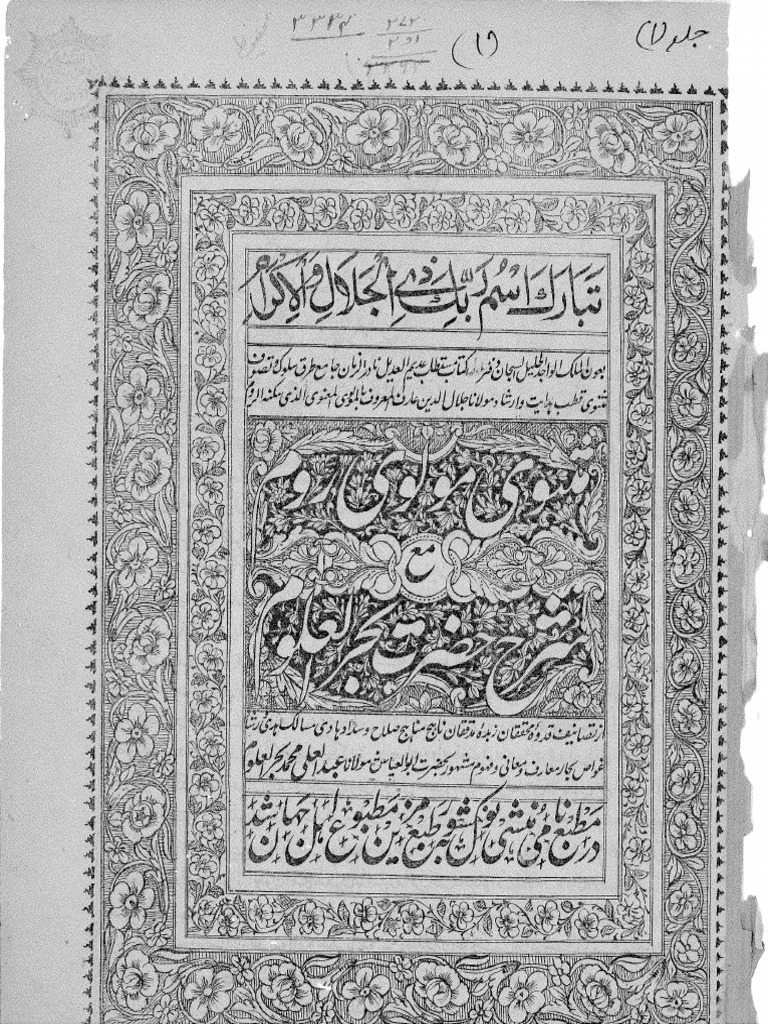 جلد (۱)
(۱)
۳۳۳۴
تَبَارَكَ اسْمُ رَبِّكَ ذِي الْجَلَالِ وَالْإِكْرَامِ
بعون الملك الواحد الجليل السبحان كتاب مستطاب عديم العديل نادر الزمان جامع طرق سلوك و تصوف
مثنوی قطب هدایت و ارشاد مولانا جلال الدین عارف المعروف بالمولوی المعنوی الذی سكنه الروم
مثنوی مولوی روم
مع
شرح حضرت بحر العلوم
از تصانیف قدوۀ محققان زبدۀ مدققان ناهج مناهج صلاح و سداد هادی مسالک هدی و رشاد
غواص بحار معارف و معانی و فهوم مشهور بحضرت ابو العیاش مولانا عبد العلی محمد بحر العلوم
در مطبع نامی منشی نولکشور بطبع مزین مطبوع اهل جهان شد